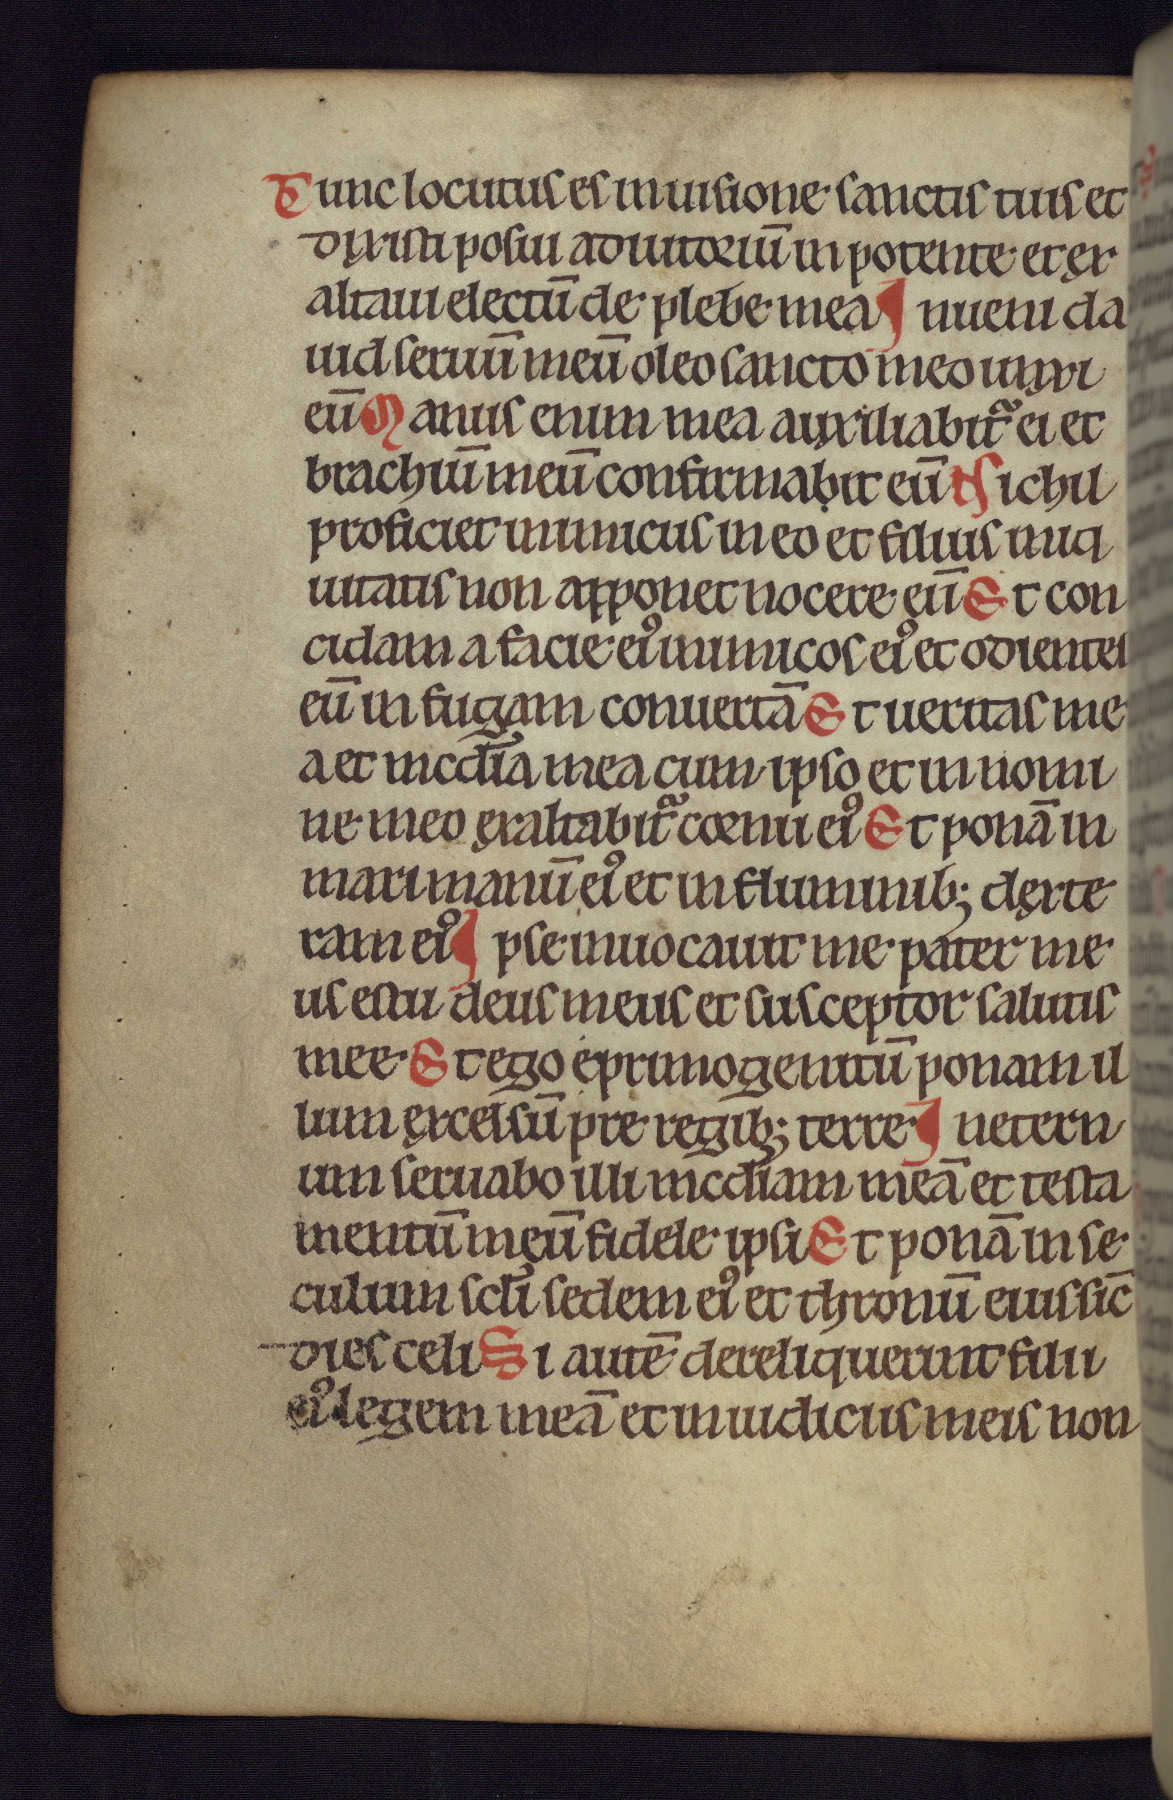 Tunc locutus es in uisione sanctis tuis et
dixisti posui adiutoriū in potente et ex
altaui electū de plebe mea Inueni da
uid seruū meū oleo sancto meo unxi
eū Manus enim mea auxiliabit᷑ ei et
brachiū meū confirmabit eū Nichil
proficiet inimicus in eo et filius iniq
uitatis non apponet nocere eū Et con
cidam a facie eiꝰ inimicos eiꝰ et odientes
eū in fugam conuertā Et ueritas me
a et mcdīa mea cum ipso et in nomi
ne meo exaltabit᷑ cornu eiꝰ Et ponā in
mari manū eiꝰ et in fluminib; dexte
ram eiꝰ Ipse inuocauit me pater me
us es tu deus meus et susceptor salutis
mee Et ego eprimogenitū ponam il
lum excelsū pre regib; terre In etern
um seruabo illi mcdīam meā et testa
mentū meū fidele ipsi Et ponā in se
culum scłi sedem eiꝰ et thronū eius sic̄
dies celi Si autē dereliquerint filii
eiꝰ legem meā et in iudiciis meis non